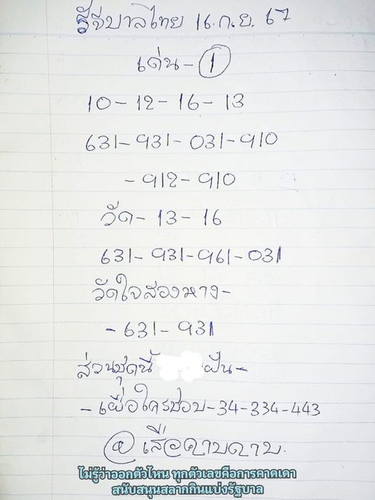 รัฐบาลไทย 16.ก.ย. 67
เด่น-1
10-12-16-13
631-931-031-910
-912-910
วัด-13-16
631-931-961-031
วัดใจสองหาง-
-631-931
ส่วนชุดนี้ ฝัน-
-เผื่อใครชอบ-34-334-443
เสือคาบดาบ.
ไม่รู้ว่าออกตัวไหน ทุกตัวเลขคือการคาดเดา
สนับสนุนสลากกินแบ่งรัฐบาล